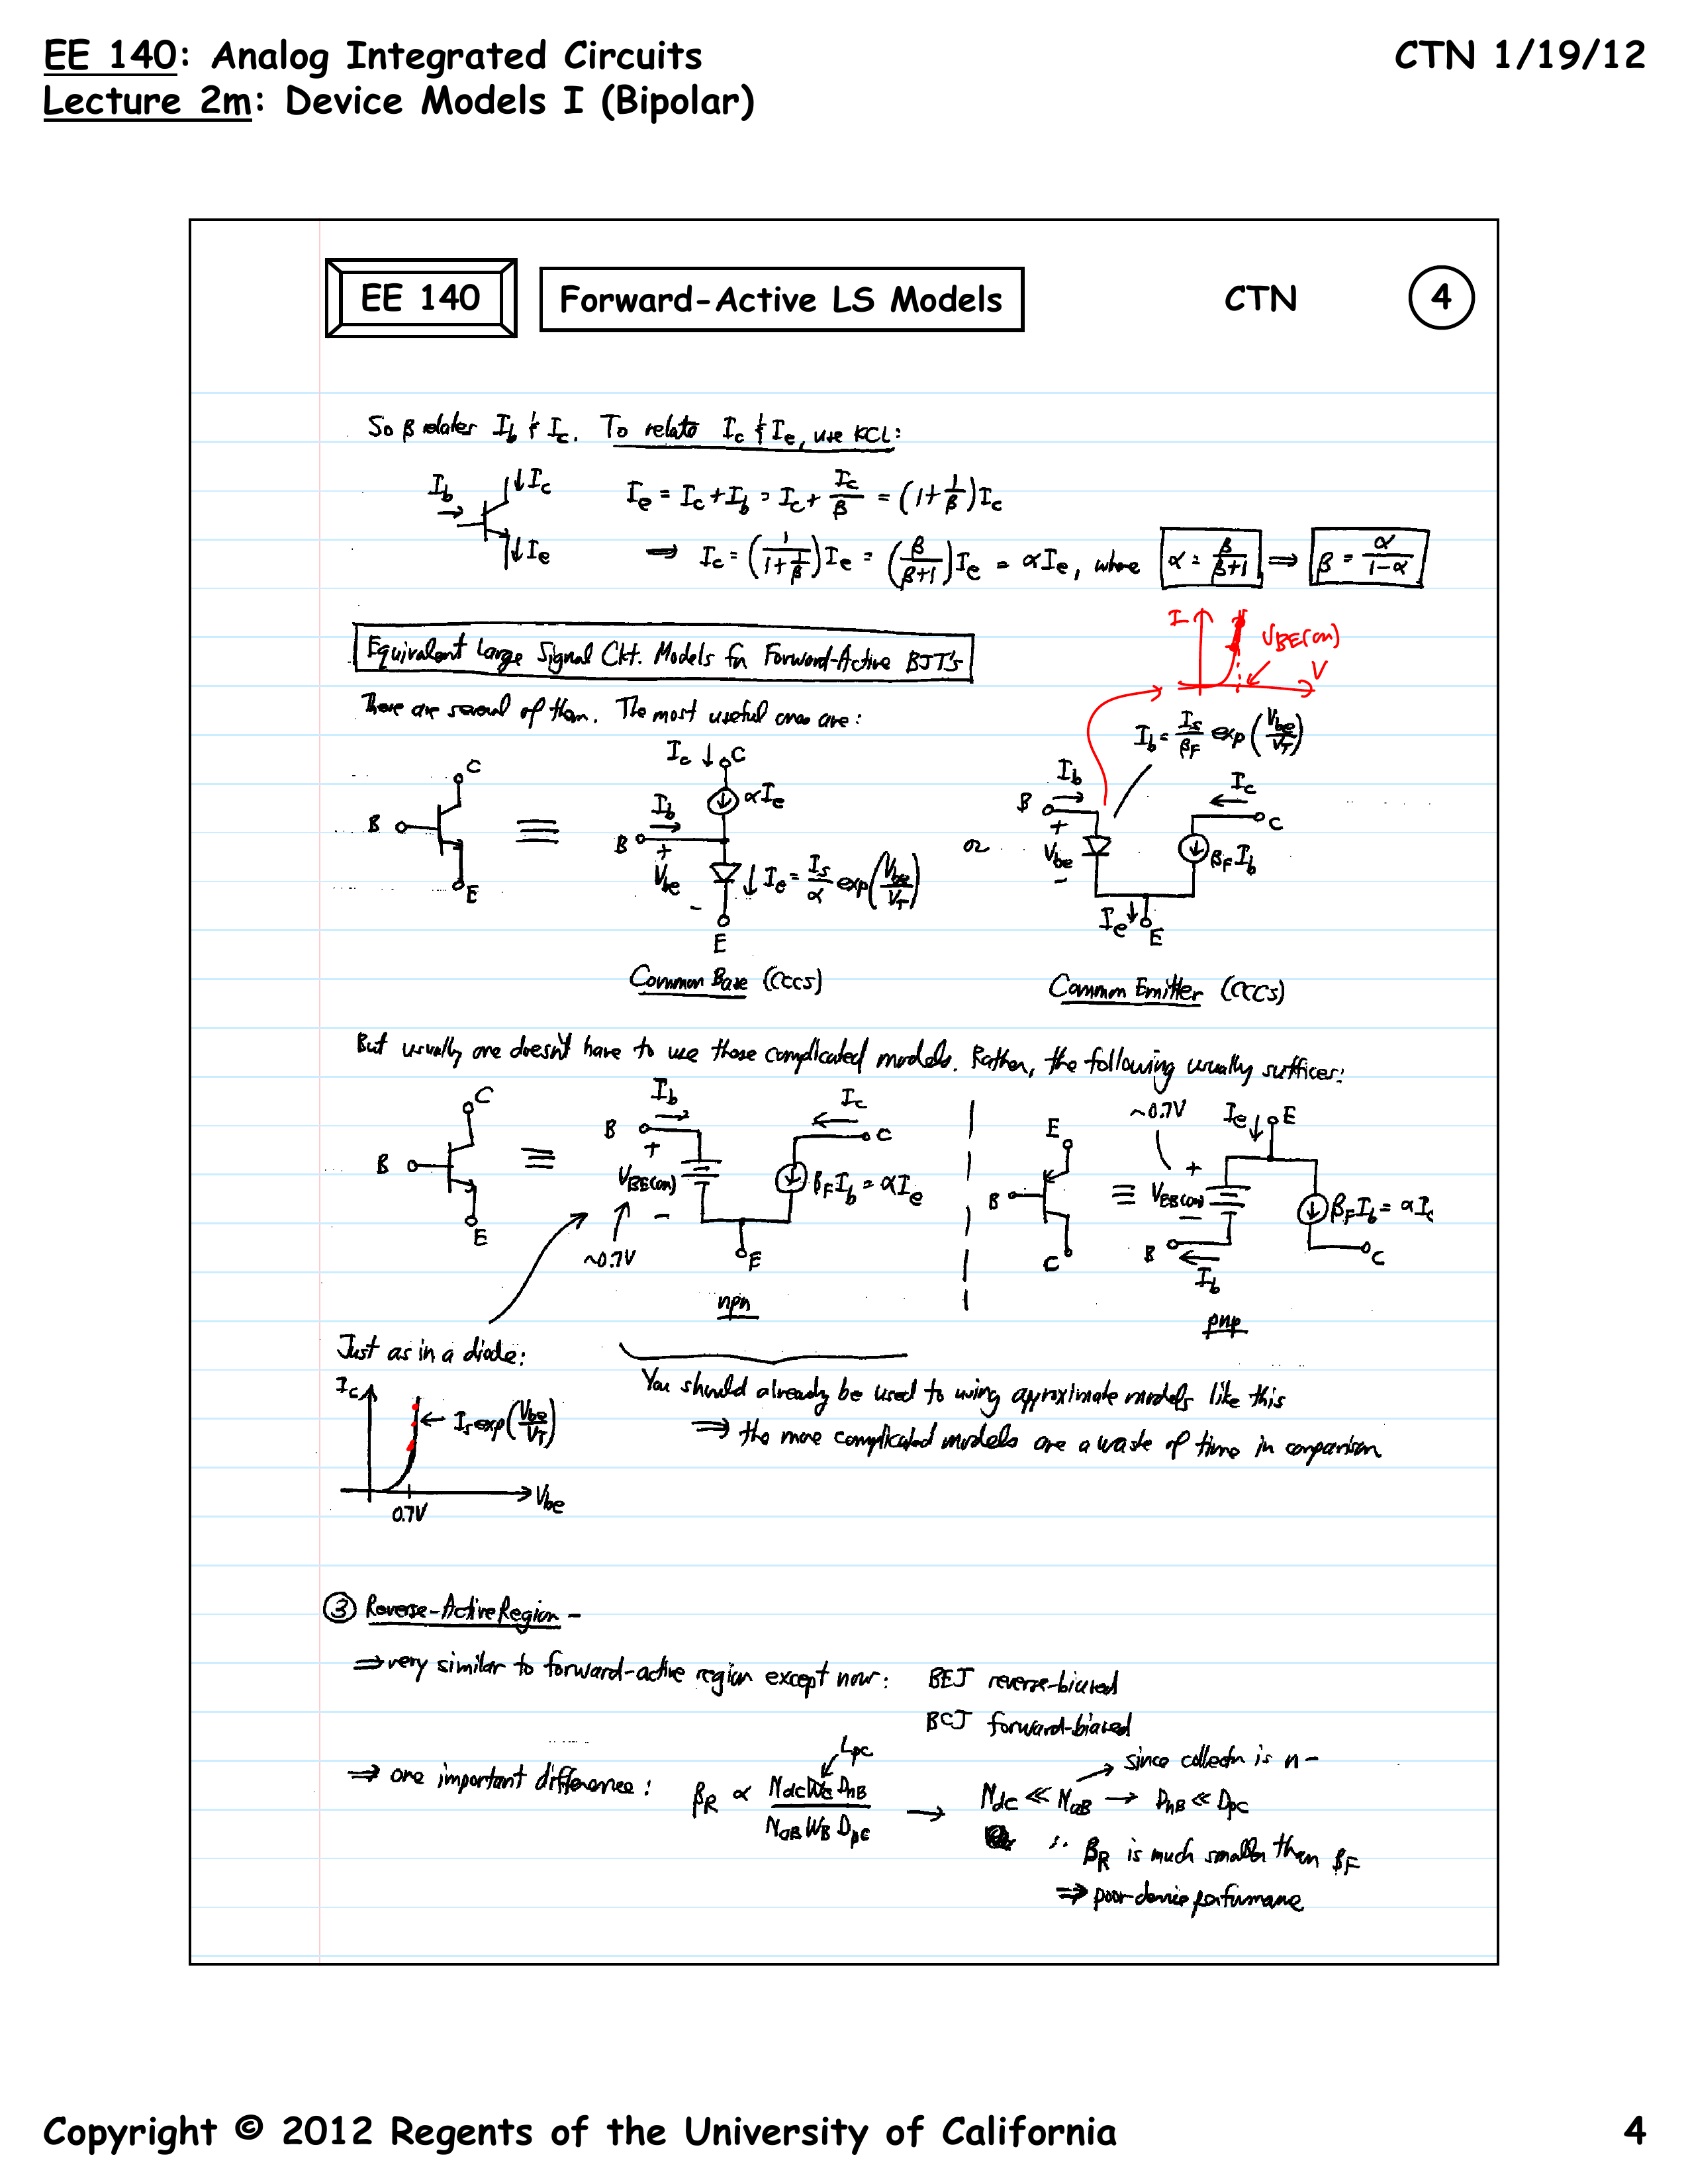 EE 140: Analog Integrated Circuits
CTN 1/19/12
Lecture 2m: Device Models I (Bipolar)
EE 140
Forward-Active LS Models
CTN
4
So β relates I_b & I_c. To relate I_c & I_e, use KCL:
I_b ↓I_c I_e = I_c + I_b = I_c + I_c/β = (1 + 1/β) I_c
↓I_e ⇒ I_c = (1/(1 + 1/β)) I_e = (β/(β+1)) I_e = αI_e, where α = β/(β+1) ⇒ β = α/(1-α)
I V_BE(on)
V
Equivalent Large Signal Ckt. Models for Forward-Active BJT's
There are several of them. The most useful ones are:
I_b = I_S/β_F exp(V_be/V_T)
I_c ↓ C
C
αI_e
B ≡ I_b
B
+
V_be
-
↓ I_e = I_S/α exp(V_be/V_T)
E
E
or
I_b
B
+
V_be
-
I_c
C
β_F I_b
I_e ↓ E
Common Base (CCCS)
Common Emitter (CCCS)
But usually one doesn't have to use those complicated models. Rather, the following usually suffices:
C
B ≡
E
I_b
B
+
V_BE(on)
-
~0.7V
I_c
C
β_F I_b = αI_e
E
npn
E
B ≡
C
~0.7V
I_e ↓ E
+
V_EB(on)
-
B
I_b
β_F I_b = αI_c
C
pnp
Just as in a diode:
I_c
← I_S exp(V_be/V_T)
V_be
0.7V
You should already be used to using approximate models like this
⇒ the more complicated models are a waste of time in comparison
③ Reverse-Active Region -
⇒ very similar to forward-active region except now: BEJ reverse-biased
BCJ forward-biased
L_pc
since collector is n-
⇒ one important difference: β_R ∝ N_dC W_C D_nB / N_aB W_B D_pC → N_dC ≪ N_aB → D_nB ≪ D_pC
∴ β_R is much smaller than β_F
⇒ poor device performance
Copyright © 2012 Regents of the University of California
4